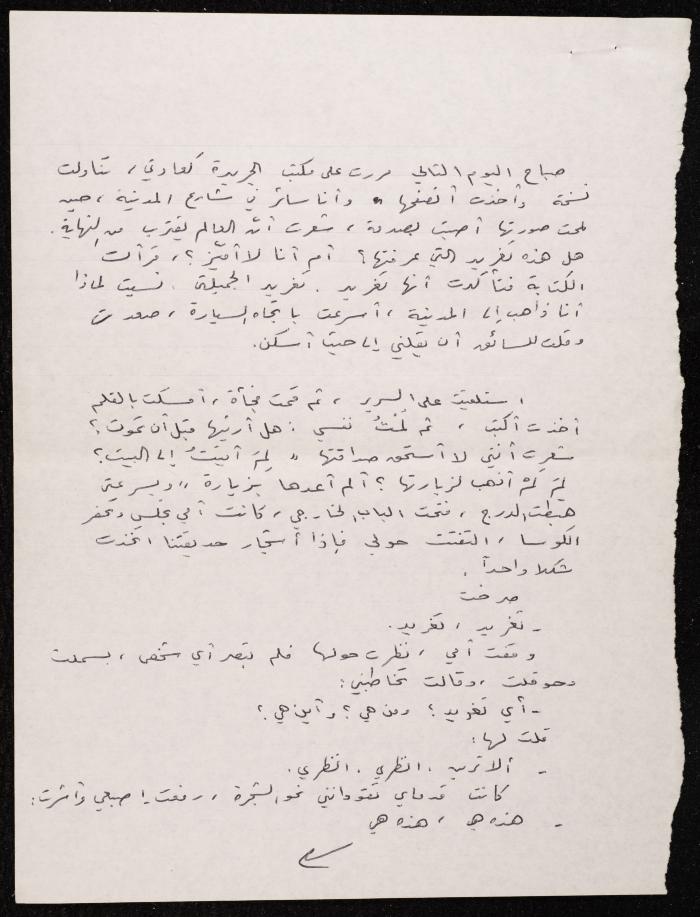 صباح اليوم التالي مررت على مكتب الجريدة كعادتي، تناولت
نسخة وأخذت أتصفحها، وأنا سائر في شارع المدينة، حين
لمحت صورتها أصبت بصدمة، شعرت أنّ العالم يقترب من النهاية.
هل هذه تغريد التي عرفتها؟ أم أنا لا أميّز؟، قرأت
الكتابة فتأكدت أنها تغريد. تغريد الجميلة. نسيت لماذا
أنا ذاهب إلى المدينة، أسرعت باتجاه السيارة، صعدت
وقلت للسائق أن يقلني إلى حيث أسكن.
استلقيت على السرير، ثم قمت فجأة، أمسكت بالقلم
أخذت أكتب، ثم لمْتُ نفسي: هل أرثيها قبل أن تموت؟
شعرت أنني لا أستحق صداقتها، لِمَ أتيتُ إلى البيت؟
لِمَ لمْ أذهب لزيارتها؟ ألم أعدها بزيارة، وبسرعتي
هبطت الدرج، فتحت الباب الخارجي، كانت أمي تجلس وتحفر
الكوسا، التفتت حولي فإذا أشجار حديقتنا اتخذت
شكلا واحداً.
صرخت
- تغريد، تغريد.
وقفت أمي، نظرت حولها فلم تبصر أي شخص، بسملت
وحوقلت، وقالت تخاطبني:
- أي تغريد؟ ومن هي؟ وأين هي؟
قلت لها:
- ألا ترين. انظري. انظري.
كانت قدماي تقودانني نحو الشجرة، رفعت إصبعي وأشرت:
- هذه هي، هذه هي